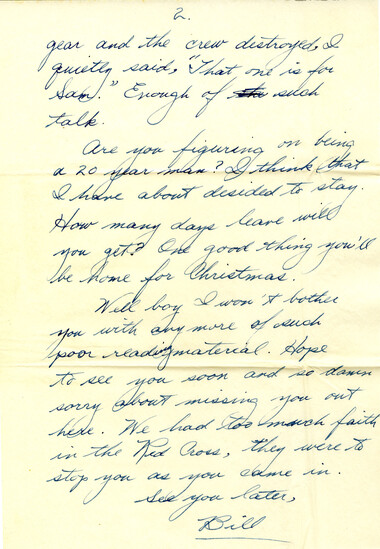 2.
gear and the crew distroyed, I
quietly said, "That one is for
Sam." Enough of such
talk.
Are you figuring on being
a 20 year man? I think that
I have about decided to stay.
How many days leave will
you get? One good thing you'll
be home for Christmas.
Well boy I won't bother
you with any more of such
poor reading material. Hope
to see you soon and so damn
sorry about missing you out
here. We had too much faith
in the Red Cross, they were to
stop you as you came in.
See you later,
Bill